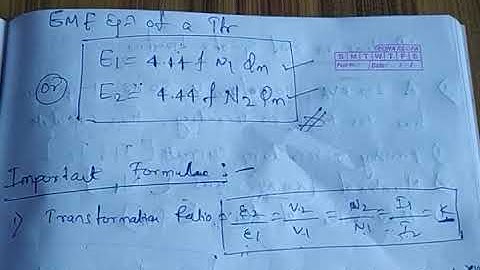 EMF Eqn of a T/r
E1 = 4.44 f N1 Φm
(or)
E2 = 4.44 f N2 Φm
S M T W T F S
Important Formulae :-
1) Transformation Ratio, E2/E1 = V2/V1 = N2/N1 = I1/I2 = K